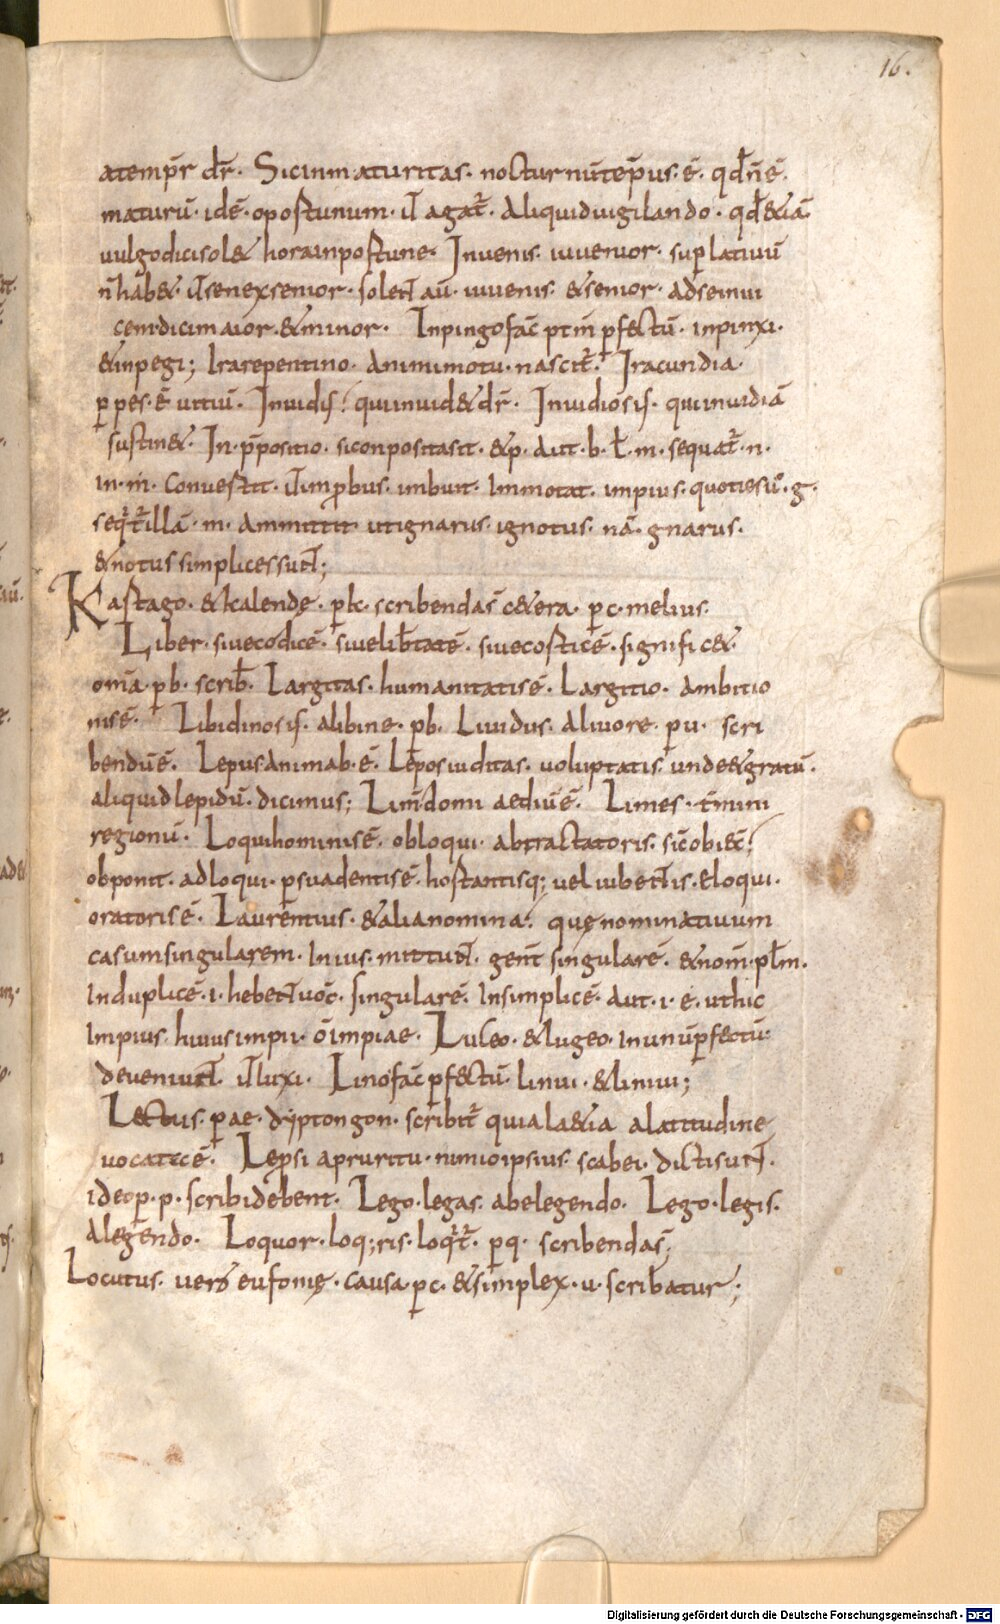 16.
atemp̄r dr̄. Sicinmaturitas. nocturnūtēpus. ē. qđn̄ē.
maturū. idē. oportunum. ił agat̄. Aliquiduigilando. qđ&iā
uulgodicisol& horainportune. Iuuenis. iuuenior. suplatiuū
n̄hab&. iłsenexsenior. solent̄ aū. iuuenis. &senior. adseinui
cemdicimaior. &minor. Inpingofac̄ ptm̄ pfectū. inpinxi.
&inpegi; Irarepentino. Animimotu. nascit̄. Iracundia.
ppes. ē uitiū. Inuidis! quiinuid& dr̄. Inuidiosis. quiinuidiā
sustin&. In. p̄positio. siconpositasit. &p. aut. b. ł. m. sequat̄. n.
in. m̄. conuertit. iłimpbus. imbuit. Immotat. impius. quotiesū. g.
seqt̄illā. m. Ammittit utignarus. ignotus. nā. gnarus.
&notus simplicessunt̄;
Kartago. &kalendę. pk. scribendas̄ c&era. pc. melius.
Liber. siuecodicē. siuelib̄tatē. siuecorticē. signific&.
omīa. pb. scrib̄. Largitas. humanitatisē. Largitio. ambitio
nisē. Libidinosis. alibine. pb. Liuidus. aliuore. pu. scri
bendūē. Lepus animab. ē. Lep̄os iuditas. uoluptatis. unde&gratū.
aliquidlepidū. dicimus; Lim̄domi aediuē. Limes. t̄mini
regionū. Loquihominisē. obloqui. abtractatoris. sic̄obiec̄!
obponit. adloqui. psuadentisē. hortantisq; uel iubent̄is. Eloqui.
oratorisē. Laurentius. &alianomina! quęnominatiuum
casumsingularem. Inius. mittunt̄. gent̄ singularē. &nom̄. płm.
Induplicē. i. hebent̄uoc̄. singularē. Insimplicē. aut. i. e. uthic
Impius. huiusimpii. ōimpiae. Luceo. &lugeo. inunūpfectū.
deueniunt̄. iłluxi. Linofac̄pfectū. linui. &liniui;
Lectus. pae. dyptongon. scribit̄ quiala&ia alatitudine
uocatcē. Lepsi apruritu. nimioipsius. scabei. dictisunt̄.
ideop. p. scribidebent. Lego. legas. abelegendo. Lego. legis.
alegendo. Loquor. loq;ris. loqt̄. pq. scribendas̄;
Locutus. uero eufonię. causa. pc. &simplex. u. scribatur;
Digitalisierung gefördert durch die Deutsche Forschungsgemeinschaft - DFG